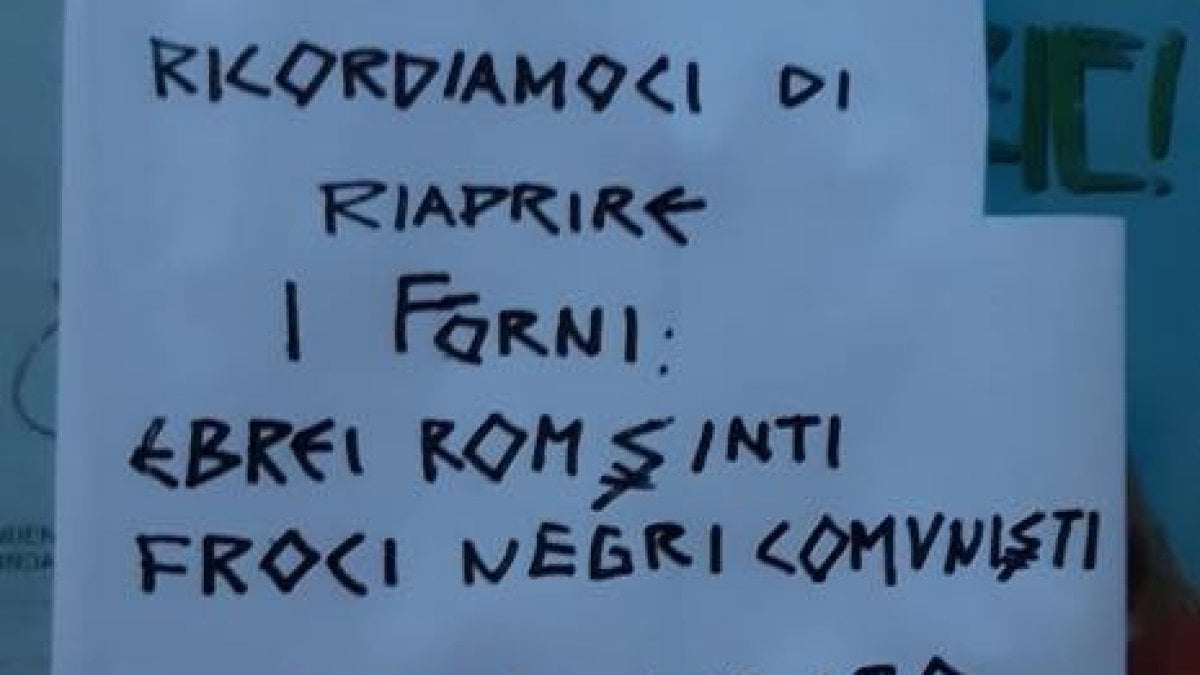 RICORDIAMOCI DI
RIAPRIRE
I FORNI:
EBREI ROM SINTI
FROCI NEGRI COMUNISTI